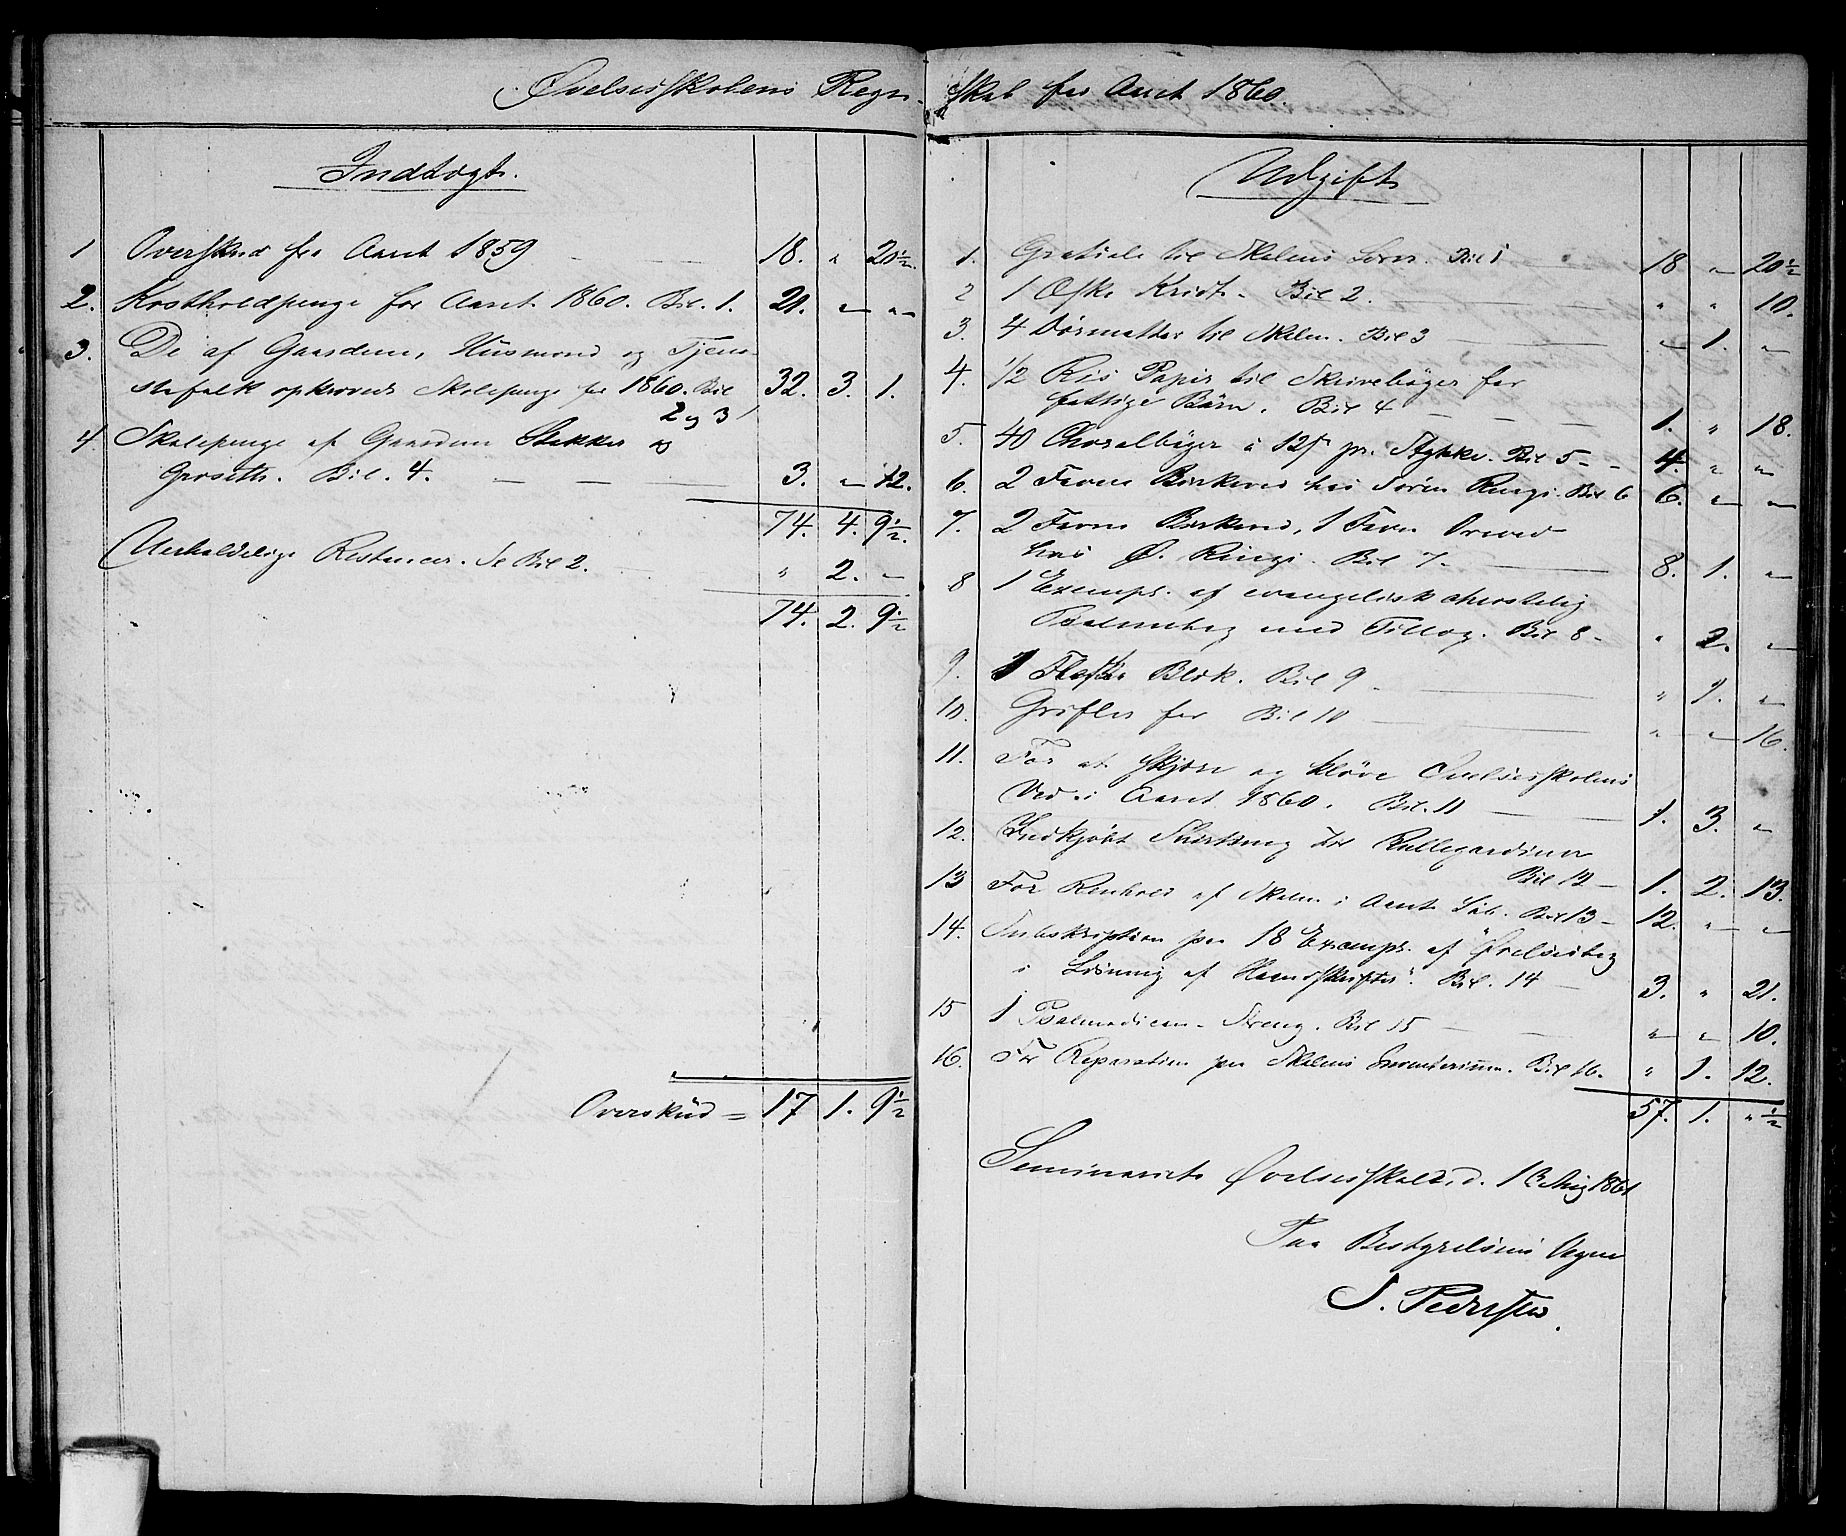 Øvelsesskolens Regnskab for Aaret 1860.
Indtægt.
1 Overskud fra Aaret 1859 18. " 20½.
2. Kostholdpenge for Aaret 1860. Bil. 1. 21. " "
3. De af Gaardene, Husmænd og Tjene-
stefolk opkrævede Skolepenge for 1860. Bil 32. 3. 1.
2 og 3
4. Skolepenge af Gaardene Stokker og
Grosetth. Bil. 4. 3. " 12.
74. 4. 9½.
Uerholdelige Restancer. Se Bil 2. " 2. "
74. 2. 9½
Overskud = 17 1. 9½
Udgift
1. Gratiale til Skolens Lærer. Bil 1 18 " 20½
2 1 Æske Kridt. Bil 2. " " 10.
3. 4 Dørmatter til Skolen. Bil 3 " 1. "
4. 1/2 Ris Papir til Skrivebøger for
fattige Børn. Bil 4 1. " 18.
5. 40 Choralbøger à 12 ß pr. Stykke. Bil 5 4. " "
6. 2 Favne Birkeved hos Søren Ringi. Bil 6 6. " "
7. 2 Favne Birkeved, 1 Favn Oreved
hos Ø. Ringi. Bil 7. 8. 1. "
8 1 Exempl. af evangelisk christelig
Psalmebog med Tillæg. Bil 8 " 2. "
9. 1 Flaske Blæk. Bil 9 " 1. "
10. Grifler for Bil 10 " " 16.
11. For at skjære og kløve Øvelsesskolens
Ved i Aaret 1860. Bil. 11 1. 3. "
12. Indkjøbt til Rullegardiner
Bil 12 1. 2. 13.
13 For Renhold af Skolen i Aarets Løb. Bil 13 12. " "
14. Subskription paa 18 Exempl. af "Øvelsesbog
i Læsning af Haandskrifter". Bil. 14 3. " 21.
15 1 Psalmodicon-Streng. Bil 15 " " 10.
16. For Reparation paa Skolens Inventarium. Bil 16. " 1. 12.
57. 1. " ½
Seminariets Øvelsesskole d. Aug 1861
Paa Bestyrelsens Vegne
S. Pedersen.